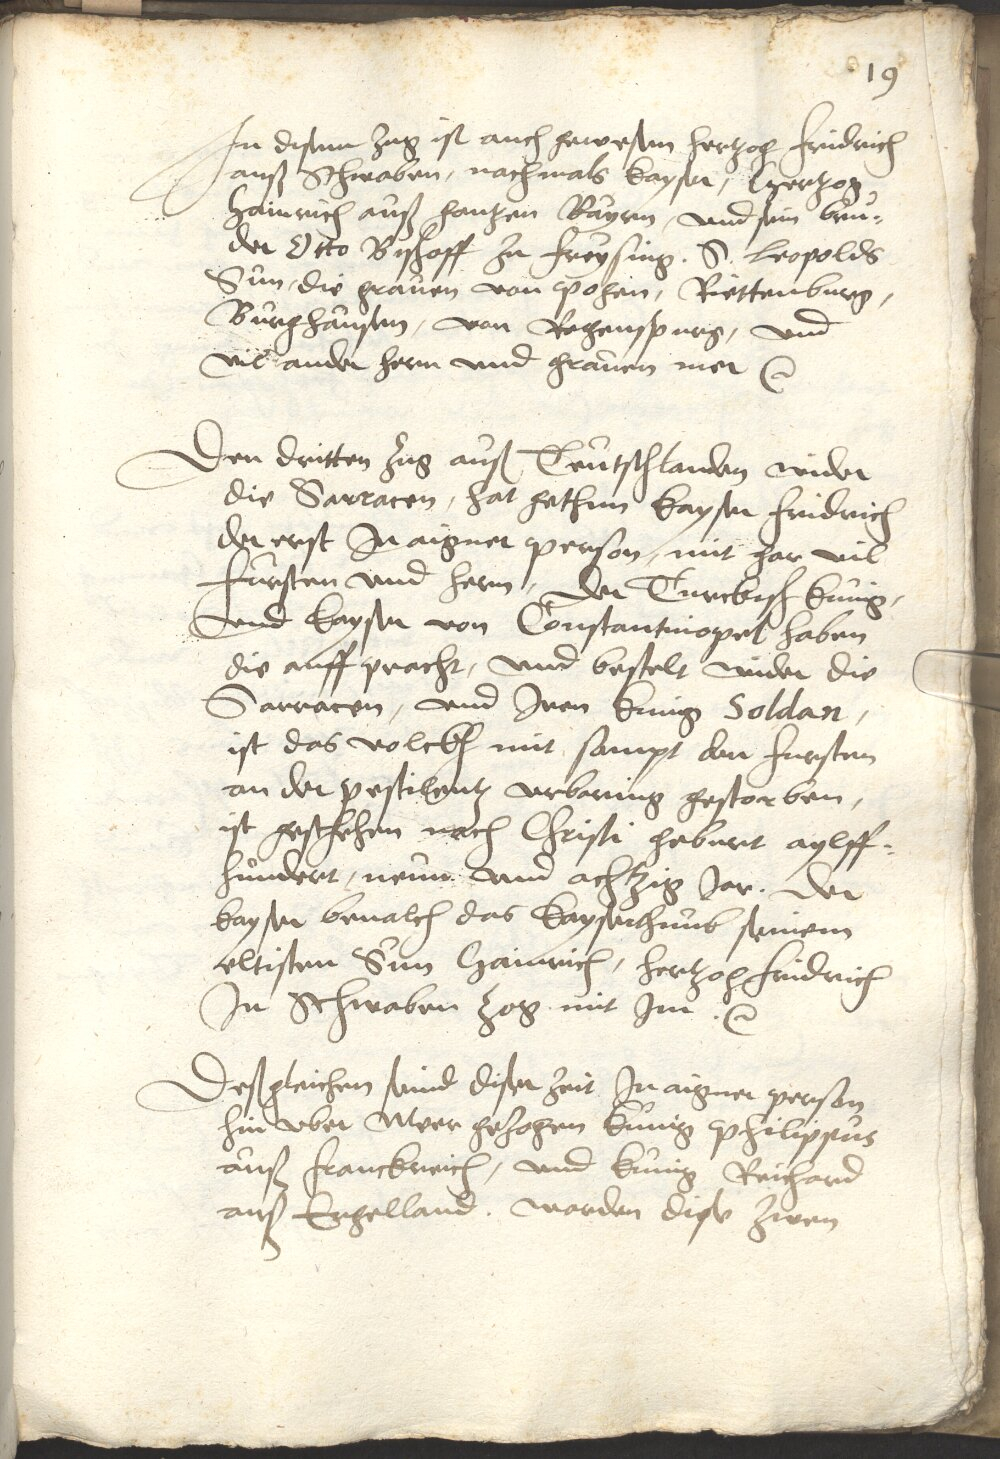 19
In disem zug ist auch gewesen hertzog fridrich
auß Schwaben, nachmals kayser, Hertzog
Hainrich auß gantzen Bayrn, und sein bru-
der Otto Bischoff zu freysing. S. Leopolds
Sun, die graven von pogen, Riettenburg,
Burghausen, von Regenspurg, und
vil ander hern und graven mer
Den dritten zug auß Teutschlanden wider
die Sarracen, hat gethun kayser fridrich
der erst In aigner person, mit gar vil
fursten und hern, der Turckisch kunig,
und kayser von Constantinopel haben
die auff pracht, und bestelt wider die
Sarracen, und Iren kunig Soldan,
ist das volckh mit sampt den fursten
an der pestilentz urbaring gestorben,
ist geschehen nach Christi geburt aylff-
hundert, neun und achtzig Jar. Der
kayser bevalch das kayserthumb seinem
eltisten Sun Hainrich, hertzog fridrich
In Schwaben zog mit Im.
Deßgleichen seind diser zeit In aigner person
hin uber Meer gezogen kunig philippus
auß franckreich, und kunig Reichard
auß Engelland. warden dise zwen